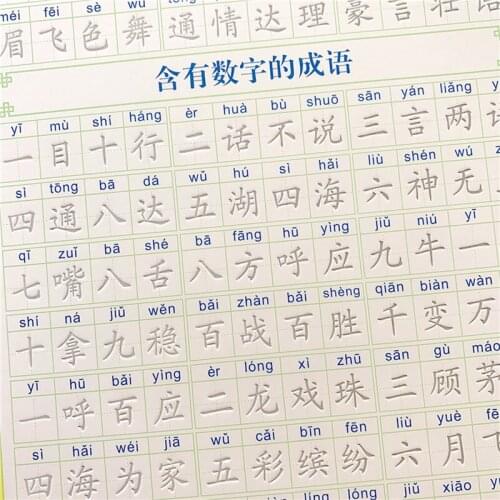 méi fēi sè wǔ tōng qíng dá lǐ háo yán
眉飞色舞 通情达理 豪言壮语
含有数字的成语
yī mù shí háng èr huà bù shuō sān yán liǎng yǔ
一目十行 二话不说 三言两
sì tōng bā dá wǔ hú sì hǎi liù shén wú
四通八达 五湖四海 六神无
qī zuǐ bā shé bā fāng hū yìng jiǔ niú yī
七嘴八舌 八方呼应 九牛一
shí ná jiǔ wěn bǎi zhàn bǎi shèng qiān biàn wàn
十拿九稳 百战百胜 千变万
yī hū bǎi yìng èr lóng xì zhū sān gù máo
一呼百应 二龙戏珠 三顾茅
sì hǎi wéi jiā wǔ cǎi bīn fēn liù yuè fēi
四海为家 五彩缤纷 六月飞